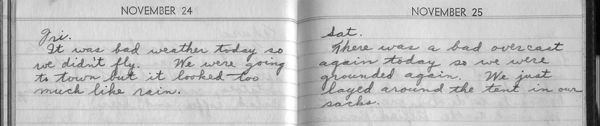 NOVEMBER 24
Fri.
It was bad weather today so
we didn't fly. We were going
to town but it looked too
much like rain.
NOVEMBER 25
Sat.
There was a bad overcast
again today so we were
grounded again. We just
layed around the tent in our
sacks.